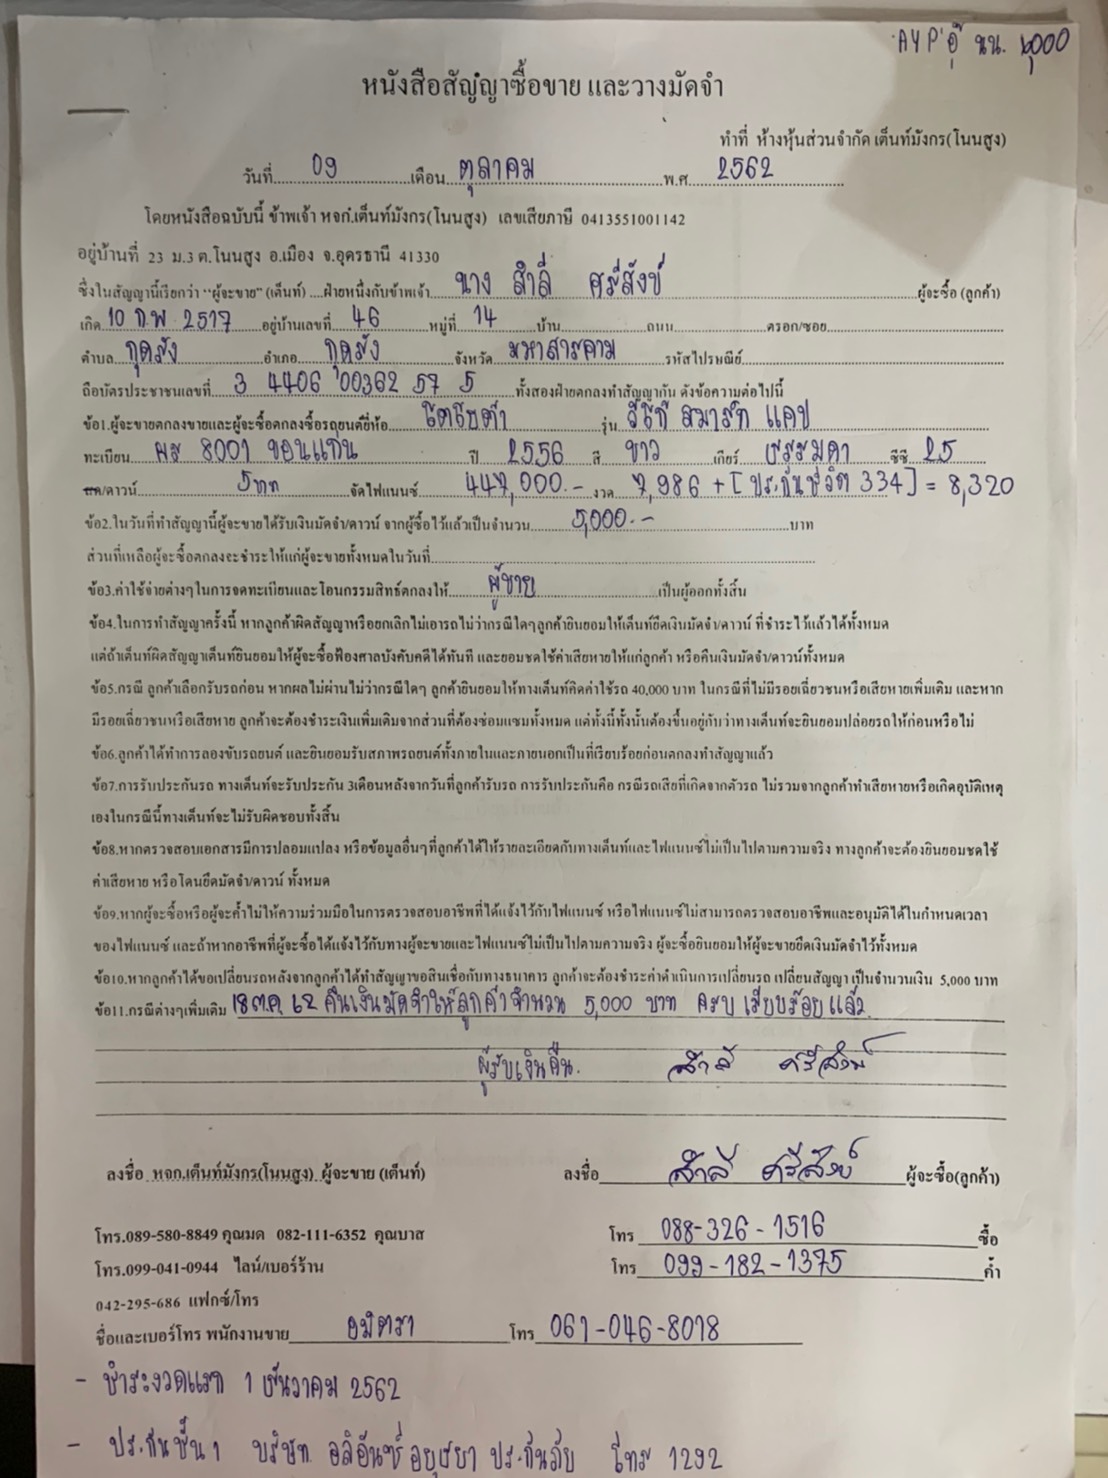 AYP อุ๊ นน. 4,000
หนังสือสัญญาซื้อขาย และวางมัดจำ
ทำที่ ห้างหุ้นส่วนจำกัด เต็นท์มังกร(โนนสูง)
วันที่ 09 เดือน ตุลาคม พ.ศ 2562
โดยหนังสือฉบับนี้ ข้าพเจ้า หจก.เต็นท์มังกร(โนนสูง) เลขเสียภาษี 0413551001142
อยู่บ้านที่ 23 ม.3 ต.โนนสูง อ.เมือง จ.อุดรธานี 41330
ซึ่งในสัญญานี้เรียกว่า "ผู้จะขาย" (เต็นท์) ....ฝ่ายหนึ่งกับข้าพเจ้า นาง สำลี ศรีสังข์ ผู้จะซื้อ (ลูกค้า)
เกิด 10 ก.พ 2517 อยู่บ้านเลขที่ 46 หมู่ที่ 14 บ้าน ถนน ตรอก/ซอย
ตำบล กุดรัง อำเภอ กุดรัง จังหวัด มหาสารคาม รหัสไปรษณีย์
ถือบัตรประชาชนเลขที่ 3 4406 00362 57 5 ทั้งสองฝ่ายตกลงทำสัญญากัน ดังข้อความต่อไปนี้
ข้อ1.ผู้จะขายตกลงขายและผู้จะซื้อตกลงซื้อรถยนต์ยี่ห้อ โตโยต้า รุ่น วีโก้ สมาร์ท แคป
ทะเบียน ผร 8001 ขอนแก่น ปี 2556 สี ขาว เกียร์ ธรรมดา ซีซี 25
สด/ดาวน์ 5บาท จัดไฟแนนซ์ 447,000.- งวด 7,986 + [ประกันชีวิต 334] = 8,320
ข้อ2.ในวันที่ทำสัญญานี้ผู้จะขายได้รับเงินมัดจำ/ดาวน์ จากผู้ซื้อไว้แล้วเป็นจำนวน 5,000.- บาท
ส่วนที่เหลือผู้จะซื้อตกลงจะชำระให้แก่ผู้จะขายทั้งหมดในวันที่
ข้อ3.ค่าใช้จ่ายต่างๆในการจดทะเบียนและโอนกรรมสิทธ์ตกลงให้ ผู้ขาย เป็นผู้ออกทั้งสิ้น
ข้อ4.ในการทำสัญญาครั้งนี้ หากลูกค้าผิดสัญญาหรือยกเลิกไม่เอารถไม่ว่ากรณีใดๆลูกค้ายินยอมให้เต็นท์ยึดเงินมัดจำ/ดาวน์ ที่ชำระไว้แล้วได้ทั้งหมด
แต่ถ้าเต็นท์ผิดสัญญาเต็นท์ยินยอมให้ผู้จะซื้อฟ้องศาลบังคับคดีได้ทันที และยอมชดใช้ค่าเสียหายให้แก่ลูกค้า หรือคืนเงินมัดจำ/ดาวน์ทั้งหมด
ข้อ5.กรณี ลูกค้าเลือกรับรถก่อน หากผลไม่ผ่านไม่ว่ากรณีใดๆ ลูกค้ายินยอมให้ทางเต็นท์คิดค่าใช้รถ 40,000 บาท ในกรณีที่ไม่มีรอยเฉี่ยวชนหรือเสียหายเพิ่มเติม และหาก
มีรอยเฉี่ยวชนหรือเสียหาย ลูกค้าจะต้องชำระเงินเพิ่มเติมจากส่วนที่ต้องซ่อมแซมทั้งหมด แต่ทั้งนี้ทั้งนั้นต้องขึ้นอยู่กับว่าทางเต็นท์จะยินยอมปล่อยรถให้ก่อนหรือไม่
ข้อ6.ลูกค้าได้ทำการลองขับรถยนต์ และยินยอมรับสภาพรถยนต์ทั้งภายในและภายนอกเป็นที่เรียบร้อยก่อนตกลงทำสัญญาแล้ว
ข้อ7.การรับประกันรถ ทางเต็นท์จะรับประกัน 3เดือนหลังจากวันที่ลูกค้ารับรถ การรับประกันคือ กรณีรถเสียที่เกิดจากตัวรถ ไม่รวมจากลูกค้าทำเสียหายหรือเกิดอุบัติเหตุ
เองในกรณีนี้ทางเต็นท์จะไม่รับผิดชอบทั้งสิ้น
ข้อ8.หากตรวจสอบเอกสารมีการปลอมแปลง หรือข้อมูลอื่นๆที่ลูกค้าได้ให้รายละเอียดกับทางเต็นท์และไฟแนนซ์ไม่เป็นไปตามความจริง ทางลูกค้าจะต้องยินยอมชดใช้
ค่าเสียหาย หรือโดนยึดมัดจำ/ดาวน์ ทั้งหมด
ข้อ9.หากผู้จะซื้อหรือผู้จะค้ำไม่ให้ความร่วมมือในการตรวจสอบอาชีพที่ได้แจ้งไว้กับไฟแนนซ์ หรือไฟแนนซ์ไม่สามารถตรวจสอบอาชีพและอนุมัติได้ในกำหนดเวลา
ของไฟแนนซ์ และถ้าหากอาชีพที่ผู้จะซื้อได้แจ้งไว้กับทางผู้จะขายและไฟแนนซ์ไม่เป็นไปตามความจริง ผู้จะซื้อยินยอมให้ผู้จะขายยึดเงินมัดจำไว้ทั้งหมด
ข้อ10.หากลูกค้าได้ขอเปลี่ยนรถหลังจากลูกค้าได้ทำสัญญาขอสินเชื่อกับทางธนาคาร ลูกค้าจะต้องชำระค่าดำเนินการเปลี่ยนรถ เปลี่ยนสัญญา เป็นจำนวนเงิน 5,000 บาท
ข้อ11.กรณีต่างๆเพิ่มเติม 18 ต.ค. 62 คืนเงินมัดจำให้ลูกค้าจำนวน 5,000 บาท ครบ เรียบร้อยแล้ว
ผู้รับเงินคืน. สำลี ศรีสังข์
ลงชื่อ หจก.เต็นท์มังกร(โนนสูง) ผู้จะขาย (เต็นท์) ลงชื่อ สำลี ศรีสังข์ ผู้จะซื้อ(ลูกค้า)
โทร.089-580-8849 คุณมด 082-111-6352 คุณบาส โทร 088-326-1516 ซื้อ
โทร.099-041-0944 ไลน์/เบอร์ร้าน โทร 099-182-1375 ค้ำ
042-295-686 แฟกซ์/โทร
ชื่อและเบอร์โทร พนักงานขาย อมิตรา โทร 061-046-8018
- ชำระงวดแรก 1 ธันวาคม 2562
- ประกันชั้น 1 บริษัท อลิอันซ์ อยุธยา ประกันภัย โทร 1292